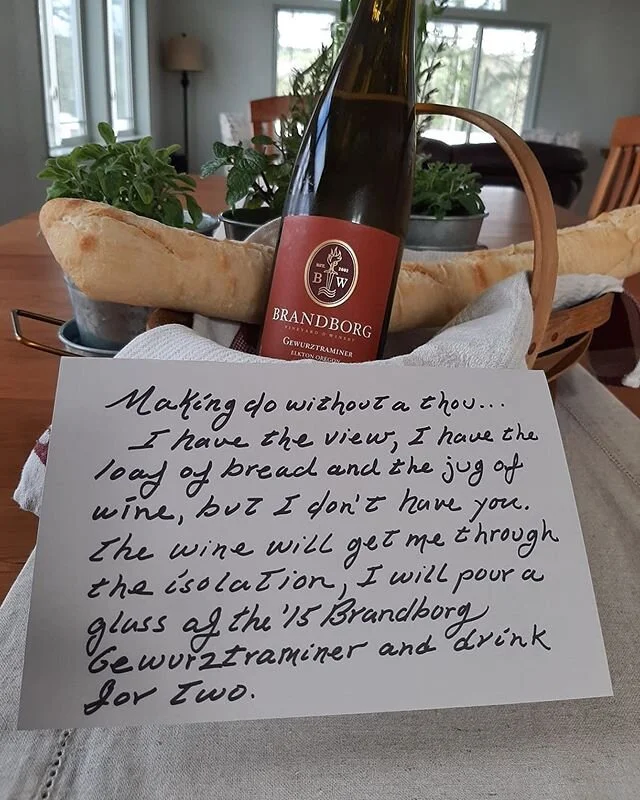 EST. 2002
B W
BRANDBORG
VINEYARD & WINERY
GEWURZTRAMINER
ELKTON OREGON
Making do without a thou...
I have the view, I have the
loaf of bread and the jug of
wine, but I don't have you.
The wine will get me through
the isolation, I will pour a
glass of the '15 Brandborg
Gewurztraminer and drink
for two.